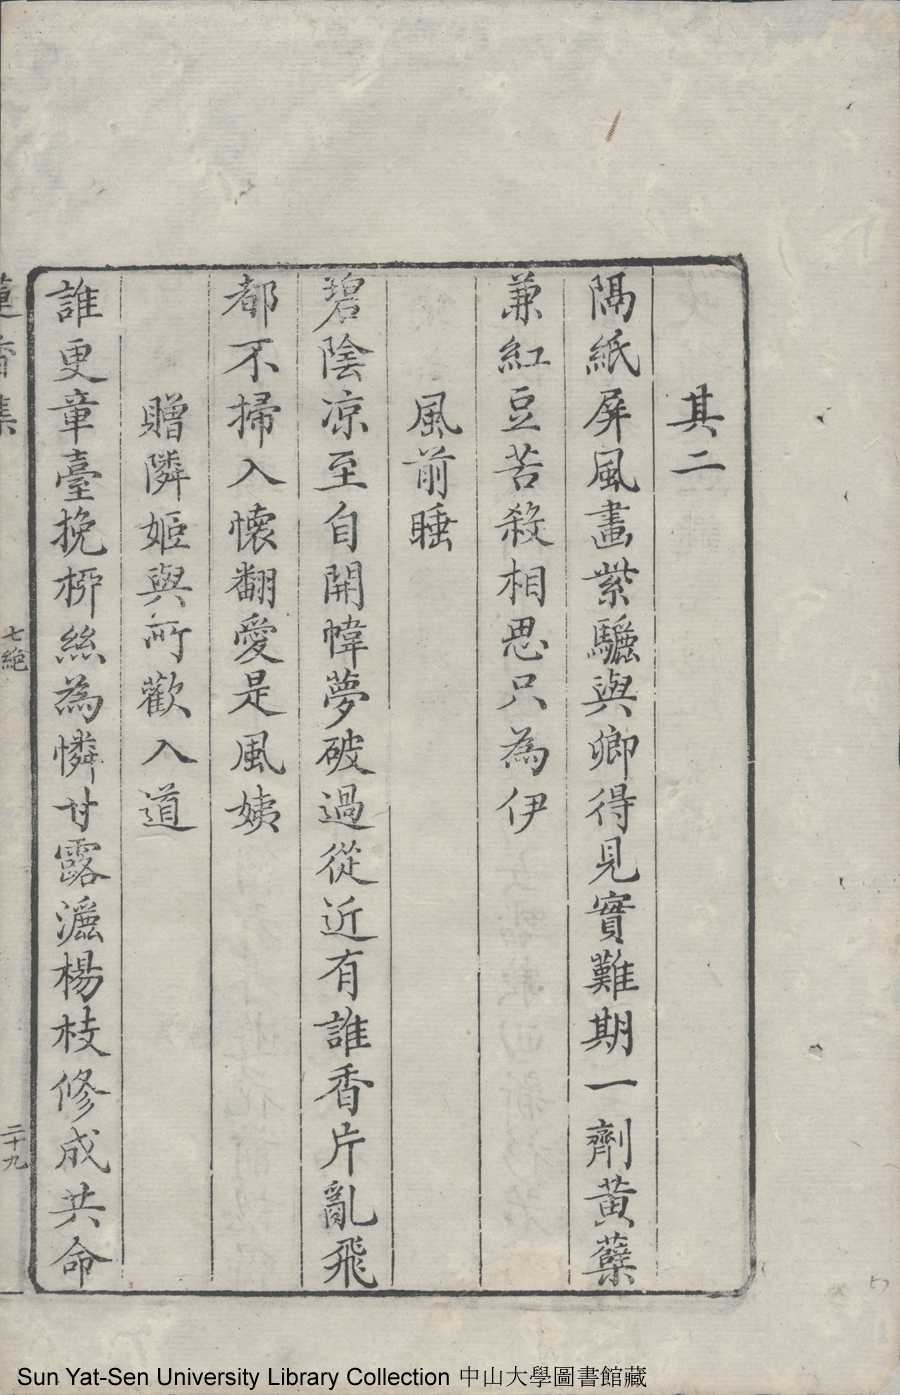 其二
隔紙屏風畫紫驪與卿得見實難期一劑黃蘗
兼紅豆苦殺相思只為伊
風前睡
碧陰凉至自開幃夢破過從近有誰香片亂飛
都不掃入懷翻愛是風姨
贈隣姬與所歡入道
誰更章臺挽桺絲為憐甘露灑楊枝修成共命
蓮香集
七絕
二十九
Sun Yat-Sen University Library Collection 中山大學圖書館藏